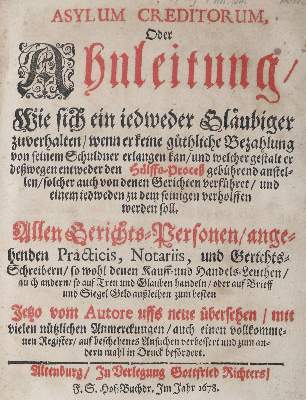 ASYLUM CREDITORUM,
Oder
Ahnleitung/
Wie sich ein iedweder Gläubiger
zuverhalten/ wenn er keine güthliche Bezahlung
von seinem Schuldner erlangen kan/ und welcher gestalt er
deßwegen entweder den Hülffs-Proceß gebührend anstel-
len/ solcher auch von denen Gerichten verführet/ und
einem iedweden zu dem seinigen verholffen
werden soll.
Allen Gerichts-Personen/ ange-
henden Practicis, Notariis, und Gerichts-
Schreibern/ so wohl denen Kauff- und Handels-Leuthen/
auch andern/ so auf Treu und Glauben handeln/ oder auf Brieff
und Siegel Geld ausleihen zum besten
Jetzo vom Autore uffs neue übersehen/ mit
vielen nützlichen Anmerckungen/ auch einen vollkomme-
nen Register/ auf beschehenes Ansuchen verbessert und zum an-
dern mahl in Druck befördert.
Altenburg/ In Verlegung Gottfried Richters/
F. S. Hof-Buchdr. Im Jahr 1678.